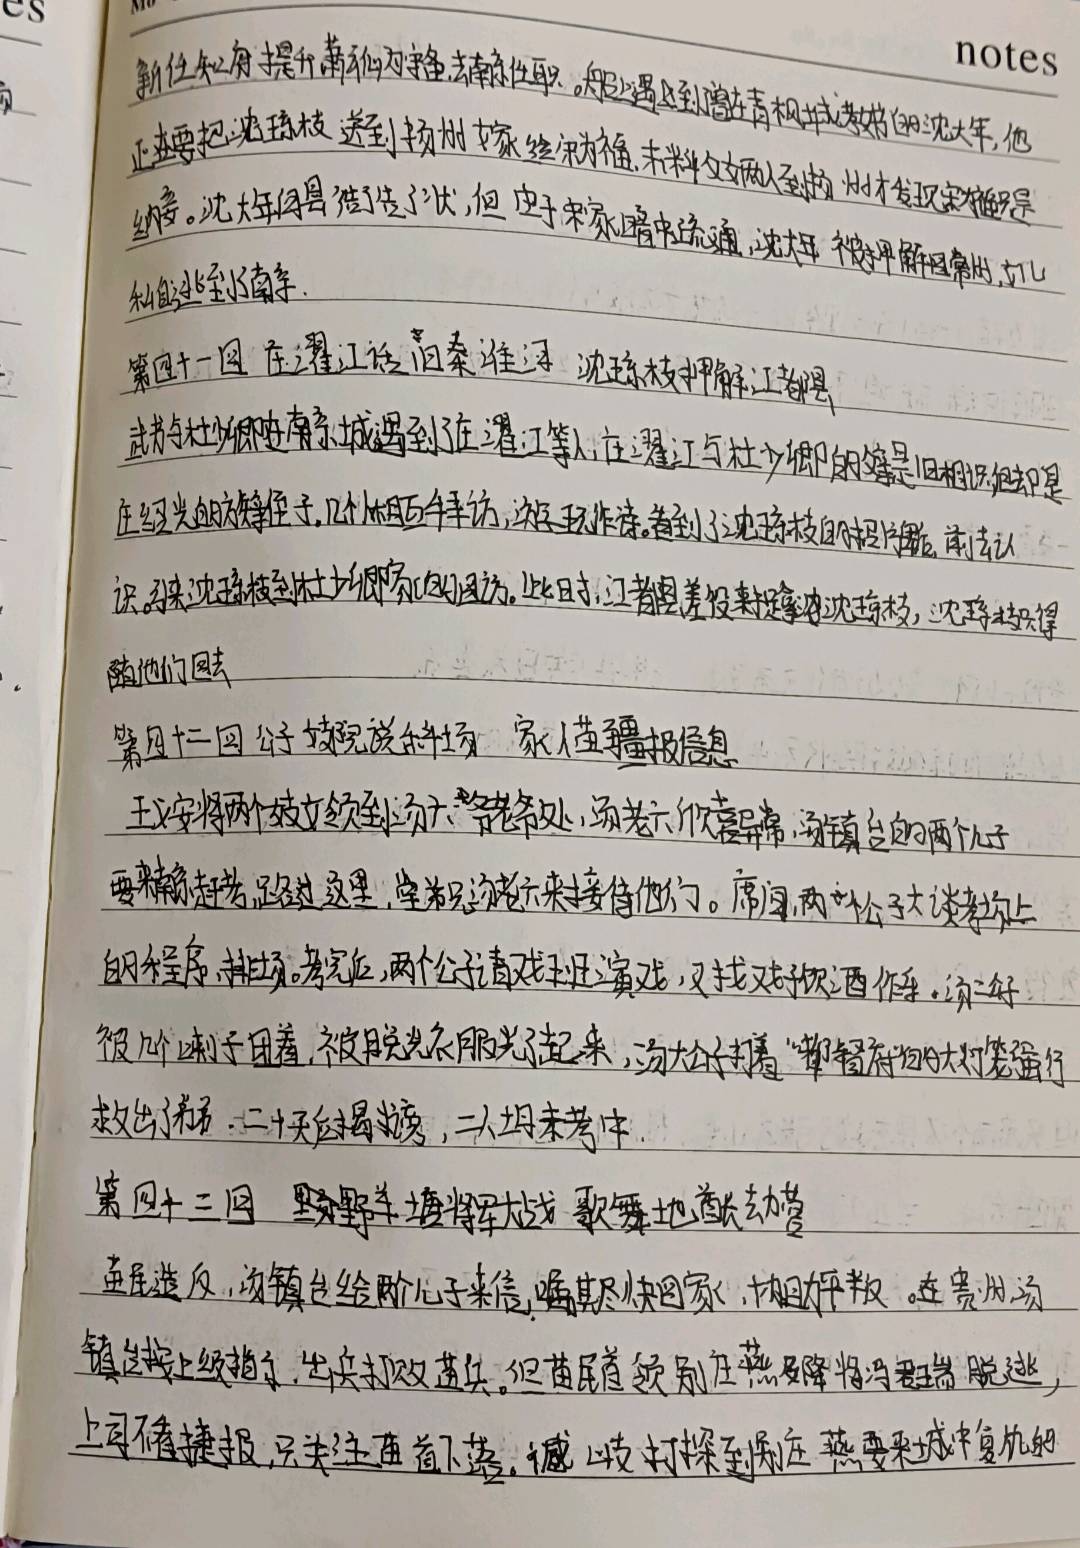 es
notes
新任知府提升萧云仙为守备,去南京任职。船上遇到曾在青枫城教书的沈大年,他
正要把沈琼枝送到扬州嫁给宋为富,未料父女两人到扬州才发现宋为富只是
纳妾。沈大年向县衙告了状,但由于宋家暗中疏通,沈大年被押解回常州,女儿
私自逃到了南京.
第四十一回 庄濯江话旧秦淮河 沈琼枝押解江都县
武书与杜少卿在南京城遇到了庄濯江等人,庄濯江与杜少卿的父辈是旧相识,但却是
庄绍光的族侄子,几个人相互拜访,游玩作诗。看到了沈琼枝的招牌,前去认
识。后来沈琼枝到杜少卿家的回访。此时,江都县差役来捉拿沈琼枝,沈琼枝只得
随他们回去
第四十二回 公子妓院说科场 家人苗疆报信息
王义安将两个妓女领到汤六老爷处,汤老六欣喜异常,汤镇台的两个儿子
要来南京赶考,路过这里,堂弟兄汤老六来接待他们。席间,两个公子大谈考场上
的程序、排场。考完后,两个公子请戏班演戏,又找戏子饮酒作乐。汤二爷
被几个喇子围着,被脱光衣服光了起来,汤大公子打着“都督府”的大灯笼强行
救出了弟弟.二十天后揭榜,二人均未考中.
第四十三回 野羊塘将军大战 歌舞地酋长劫营
苗民造反,汤镇台给两个儿子来信,嘱其尽快回家,协助平叛。在贵州汤
镇台按上级指示,出兵打败苗兵。但苗民首领别庄燕及降将冯君瑞脱逃,
上司不看捷报,只关注苗首下落。臧岐打探到别庄燕要来城中复仇的